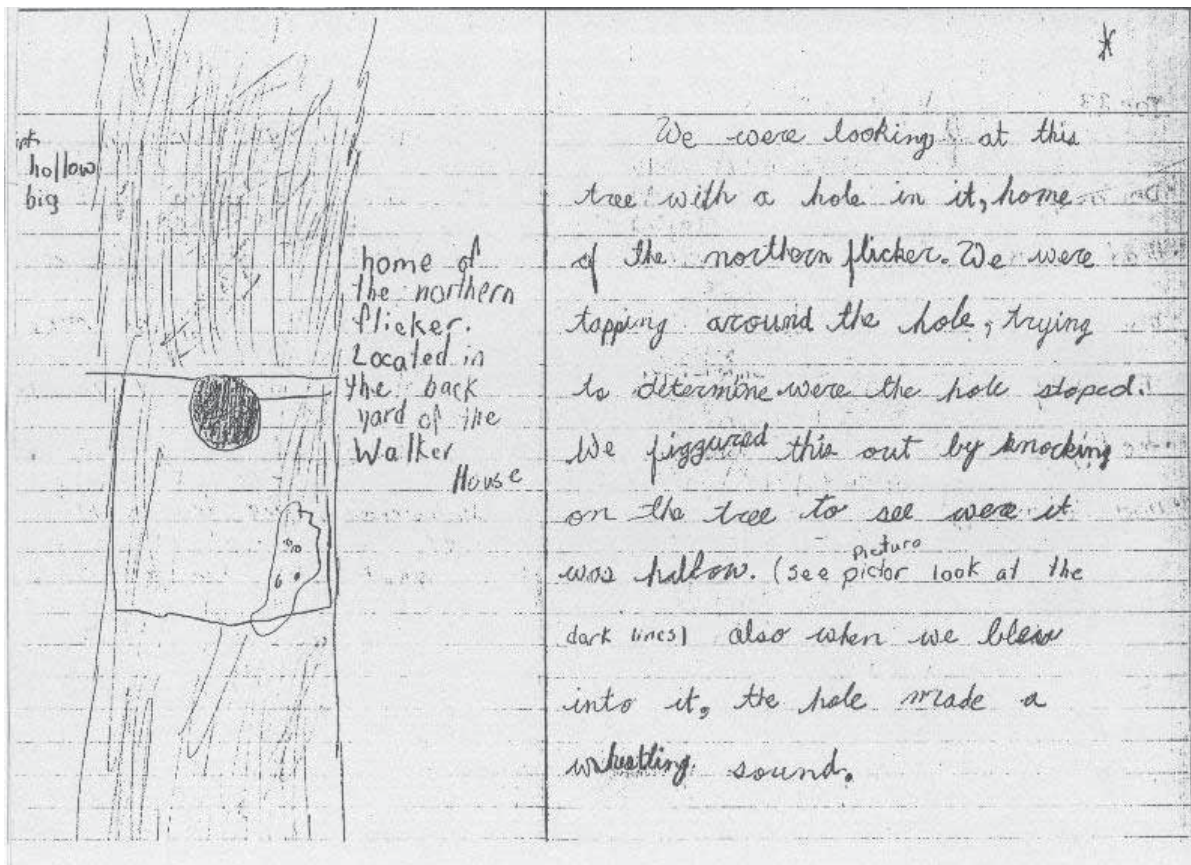 hollow
big
home of
the northern
flicker.
Located in
the back
yard of the
Walker
House
We were looking at this
tree with a hole in it, home
of the northern flicker. We were
tapping around the hole, trying
to determine were the hole stoped.
We figgured this out by knocking
on the tree to see were it
was hallow. (see pictor look at the
picture
dark lines) also when we blew
into it, the hole made a
whustling sound.